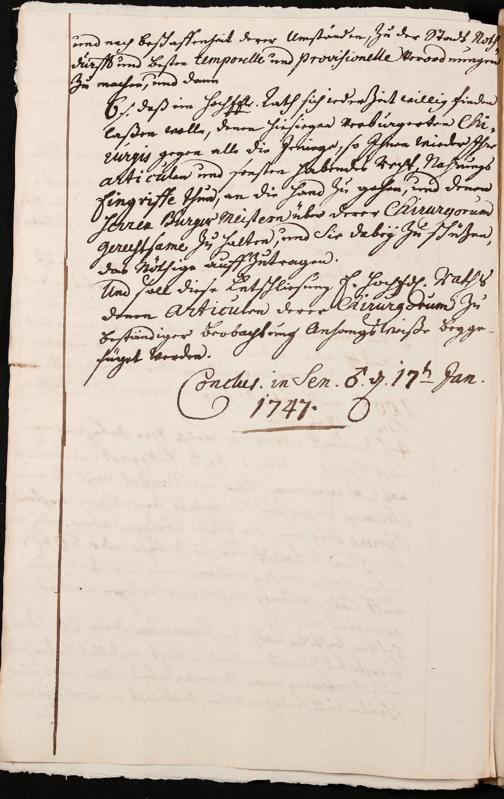 und nach beschaffenheit derer Umständen, zu der Stadt Noth
dürfft und besten temporelle und provisionelle Verordnungen
zu machen, und dann
6.) daß ein Hochedl. Rath sich jederzeit willig finden
laßen wolle, denen hiesigen verburgerten Chi-
rurgis gegen alle die Jenige, so Ihnen wieder Ihre
Articulen und sonsten habendes Recht, Nahrungs
Eingriffe thun, an die Hand zu gehen, und denen
Herren Burger Meistern über derer Chirurgorum
gerechtsame zu halten, und Sie dabey zu schützen,
das Nöthige auffzutragen.
Und soll diese Entschliesung E. Hochedl. Raths
denen Articulen derer Chirurgorum zu
beständiger beobachtung Anhangs weiße beyge-
füget werden.
Conclus. in Sen. ♂ d. 17th Jan.
1747.